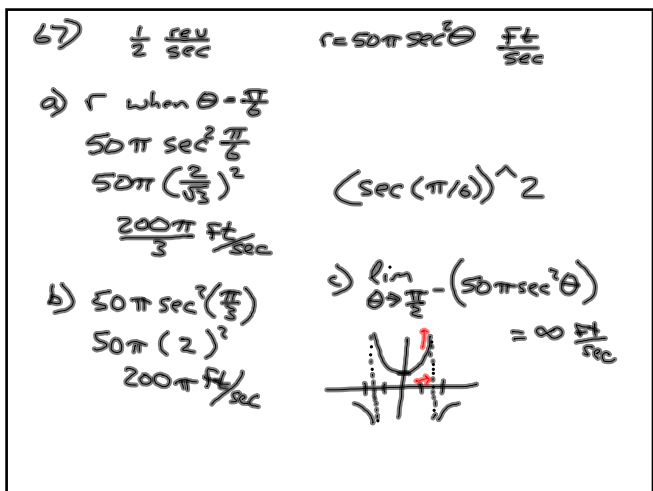 67) 1/2 rev/sec r = 50π sec²θ ft/sec
a) r when θ = π/6
50π sec² π/6
50π (2/√3)²
(sec(π/6))^2
200π/3 ft/sec
b) 50π sec²(π/3)
50π (2)²
200π ft/sec
c) lim θ→π/2⁻ (50π sec²θ)
= ∞ ft/sec